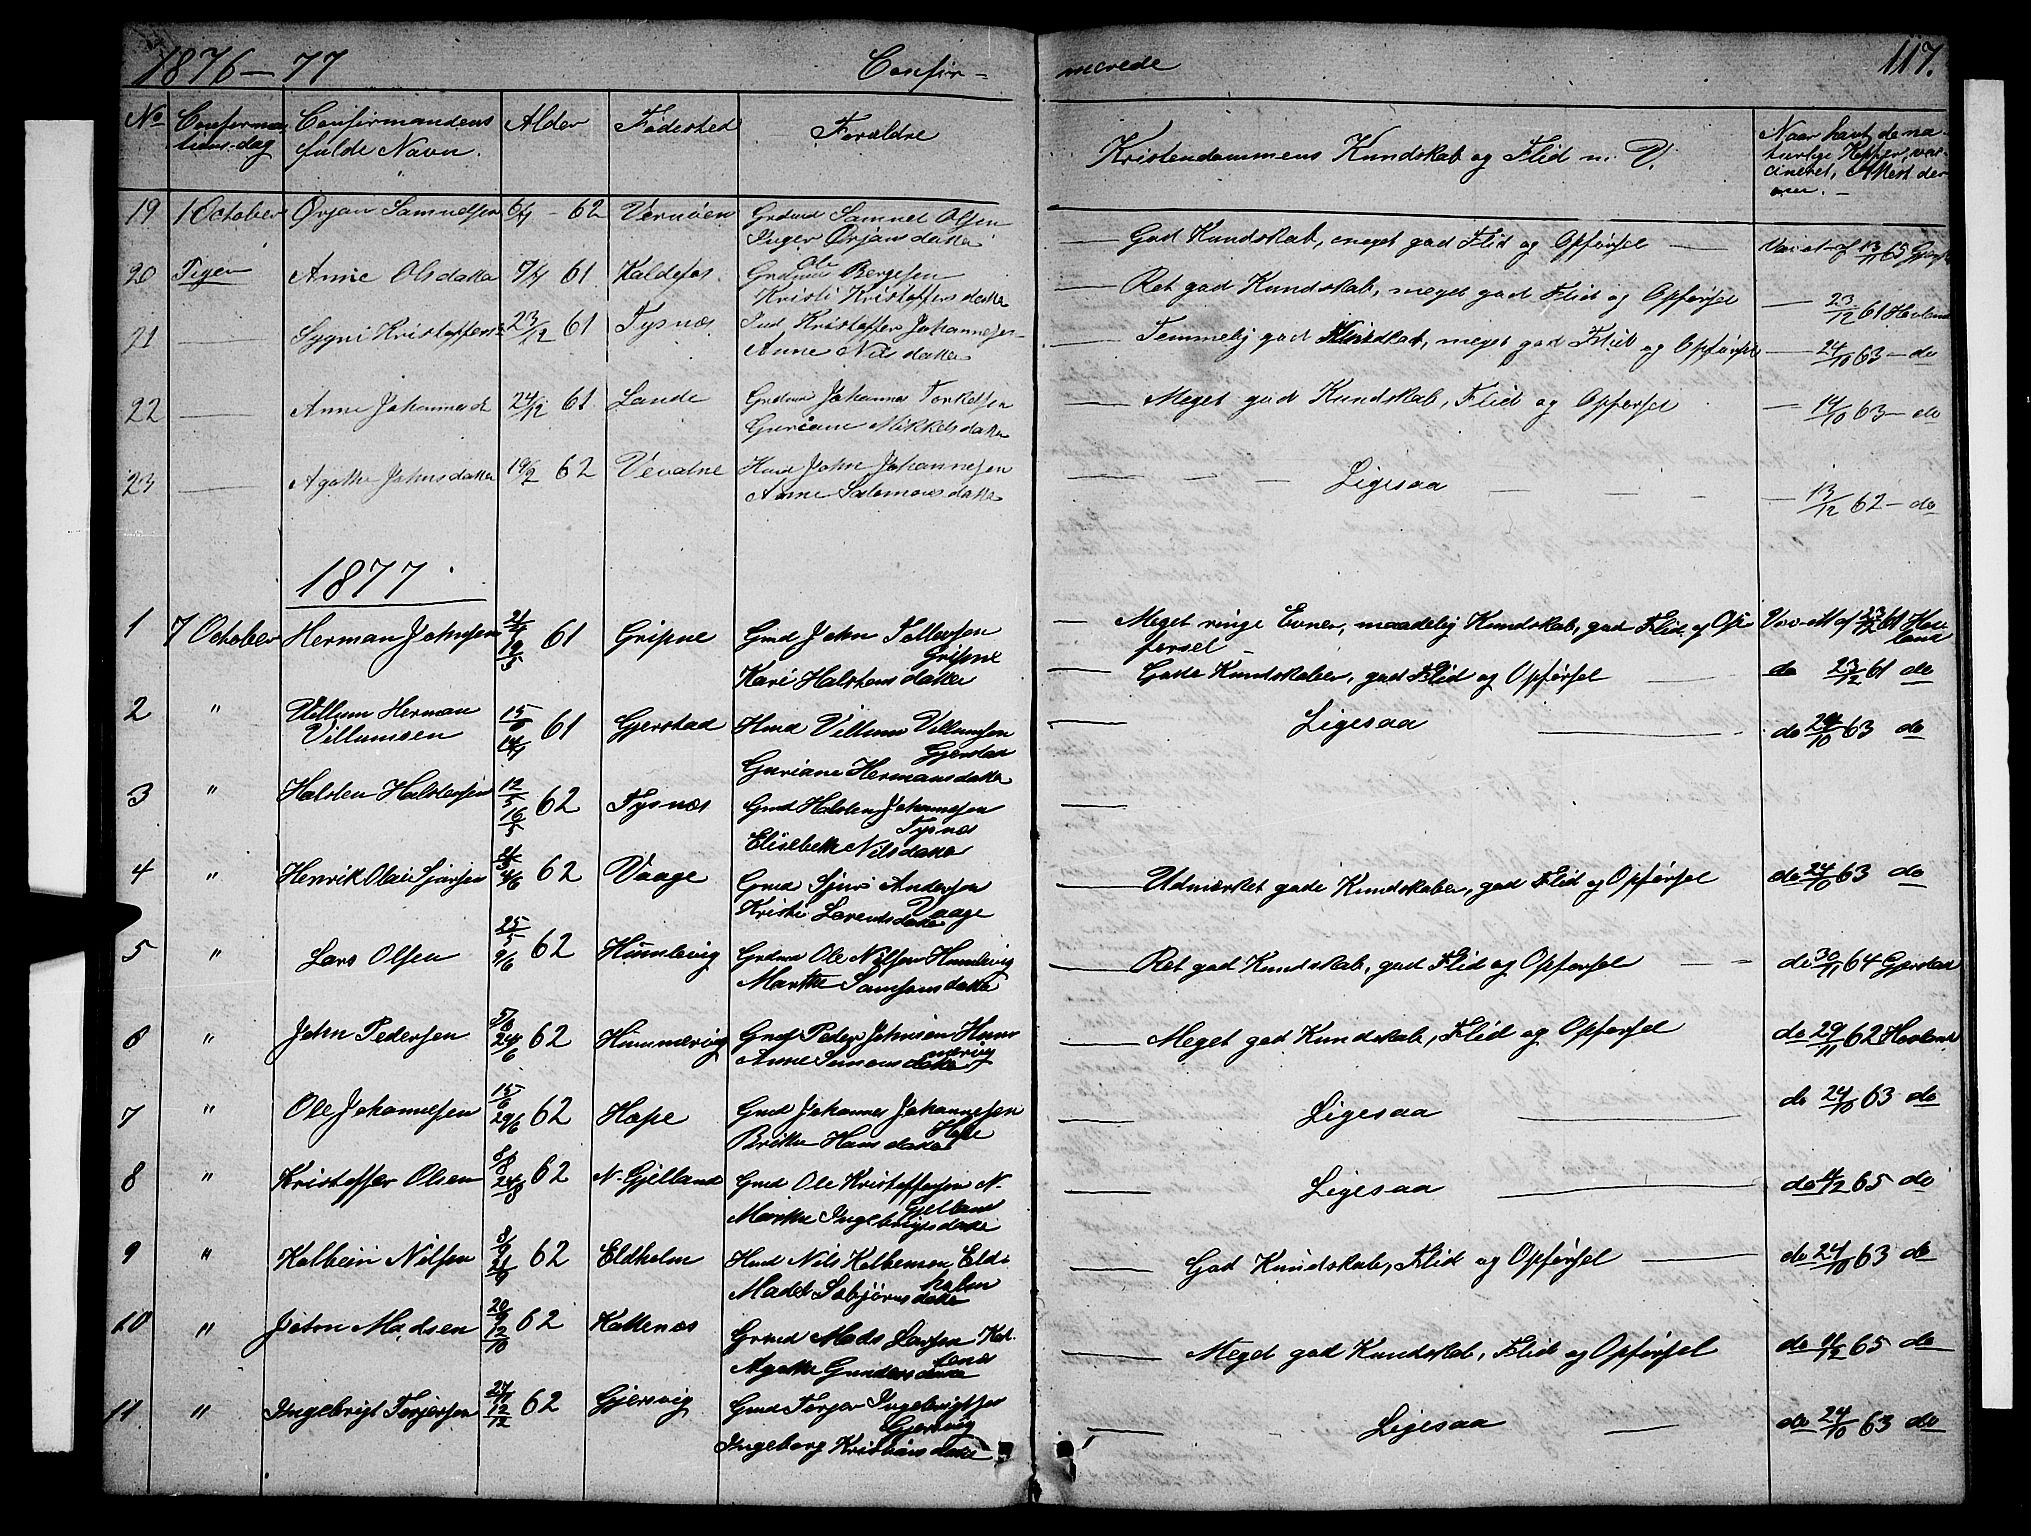 1876-77 Confir- merede 117.
No Confirma- Confirmandens Alder Fødested Forældre Kristendommens Kundskab og Flid m. V. Naar havt de na-
tions-dag fulde Navn. turlige Kopper, vac-
cineret, Attest der-
om.
19 1 October Ørjan Samuelsen 6/4 - 62 Vernøen Grdmd Samuel Olsen
Inger Ørjansdatter — God Kundskab, meget god Flid og Opførsel — Vac. at. af 13/11 65
20 Piger Anne Olsdatter 7/4 61 Kaldefos. Grdmd Ole Bergesen
Kristi Kristoffersdatter — Ret god Kundskab, meget god Flid og Opførsel — 23/12 61 Hovland
21 — Sygni Kristoffersd 23/12 61 Tysnæs Ind Kristoffer Johannesen
Anne Nilsdatter — Temmelig god Kundskab, meget god Flid og Opførsel — 24/10 63 — do
22 — Anne Johannesd 24/12 61 Lande Grdmd Johannes Torkelsen
Guriane Mikkelsdatter — Meget god Kundskab, Flid og Opførsel — 14/10 63 — do
23 — Agathe Johnsdatter 19/2 62 Vevatne Husmd John Johannesen
Anne Salomonsdatter — Ligesaa — 13/12 62 — do
1877.
1 7 October Herman Johnsen 21/4 19/5 61 Gripne Gmd John Tollevsen
Gripne
Kari Halstensdatter — Meget ringe Evner, maadelig Kundskab, god Flid og Op-
førsel — Vac. At af 23/12 61 Hov-
land
2 " Villum Herman
Villumsen 15/6 14/7 61 Gjerstad Husmd Villum Villumsen
Gjerstad
Guriane Hermansdatter — Gode Kundskaber, god Flid og Opførsel — do 23/12 61 do
3 " Halsten Halstensen 12/5 16/5 62 Tysnæs Gmd Halsten Johannesen
Tysnæs
Elisebeth Nilsdatter — Ligesaa — do 24/10 63 do
4 " Henrik Olai Sjursen 4/6 62 Vaage Gmd Sjur Andersen
Vaage
Kristi Larentsdatter — Udmærket gode Kundskaber, god Flid og Opførsel do 24/10 63 do
5 " Lars Olsen 25/5 9/6 62 Humlevig Grdmd Ole Nilsen Humlevig
Marthe Samsonsdatter — Ret god Kundskab, god Flid og Opførsel — do 30/11 64 Gjerstad
6 " John Pedersen 24/6 62 Hummervig Gmd Peder Johnsen Hum-
mervig
Anne Simonsdatter — Meget god Kundskab, Flid og Opførsel do 29/11 62 Hovland
7 " Ole Johannesen 15/6 29/6 62 Hope Gmd Johannes Johannesen
Hope
Brithe Hansdatter — Ligesaa — do 24/10 63 do
8 " Kristoffer Olsen 8/8 24/8 62 N. Gjelland Gmd Ole Kristoffersen N.
Gjelland
Marthe Ingebrigtsdatter — Ligesaa — do 4/12 65 do
9 " Kolbein Nilsen 8/9 21/9 62 Eldholm Husmd Nils Kolbensen Eld-
holm
Madel Sebjørnsdatter — God Kundskab, Flid og Opførsel — do 24/10 63 do
10 " Jeton Madsen 20/9 12/10 62 Kattenæs Grmd Mads Larsen Kat-
tenæs
Agathe Gundersdatter — Meget god Kundskab, Flid og Opførsel do 4/12 65 do
11 " Ingebrigt Torjersen 27/11 12/12 62 Gjersvig Gmd Torjer Ingebrigtsen
Gjersvig
Ingeborg Kristiansdatter — Ligesaa — do 24/10 63 do